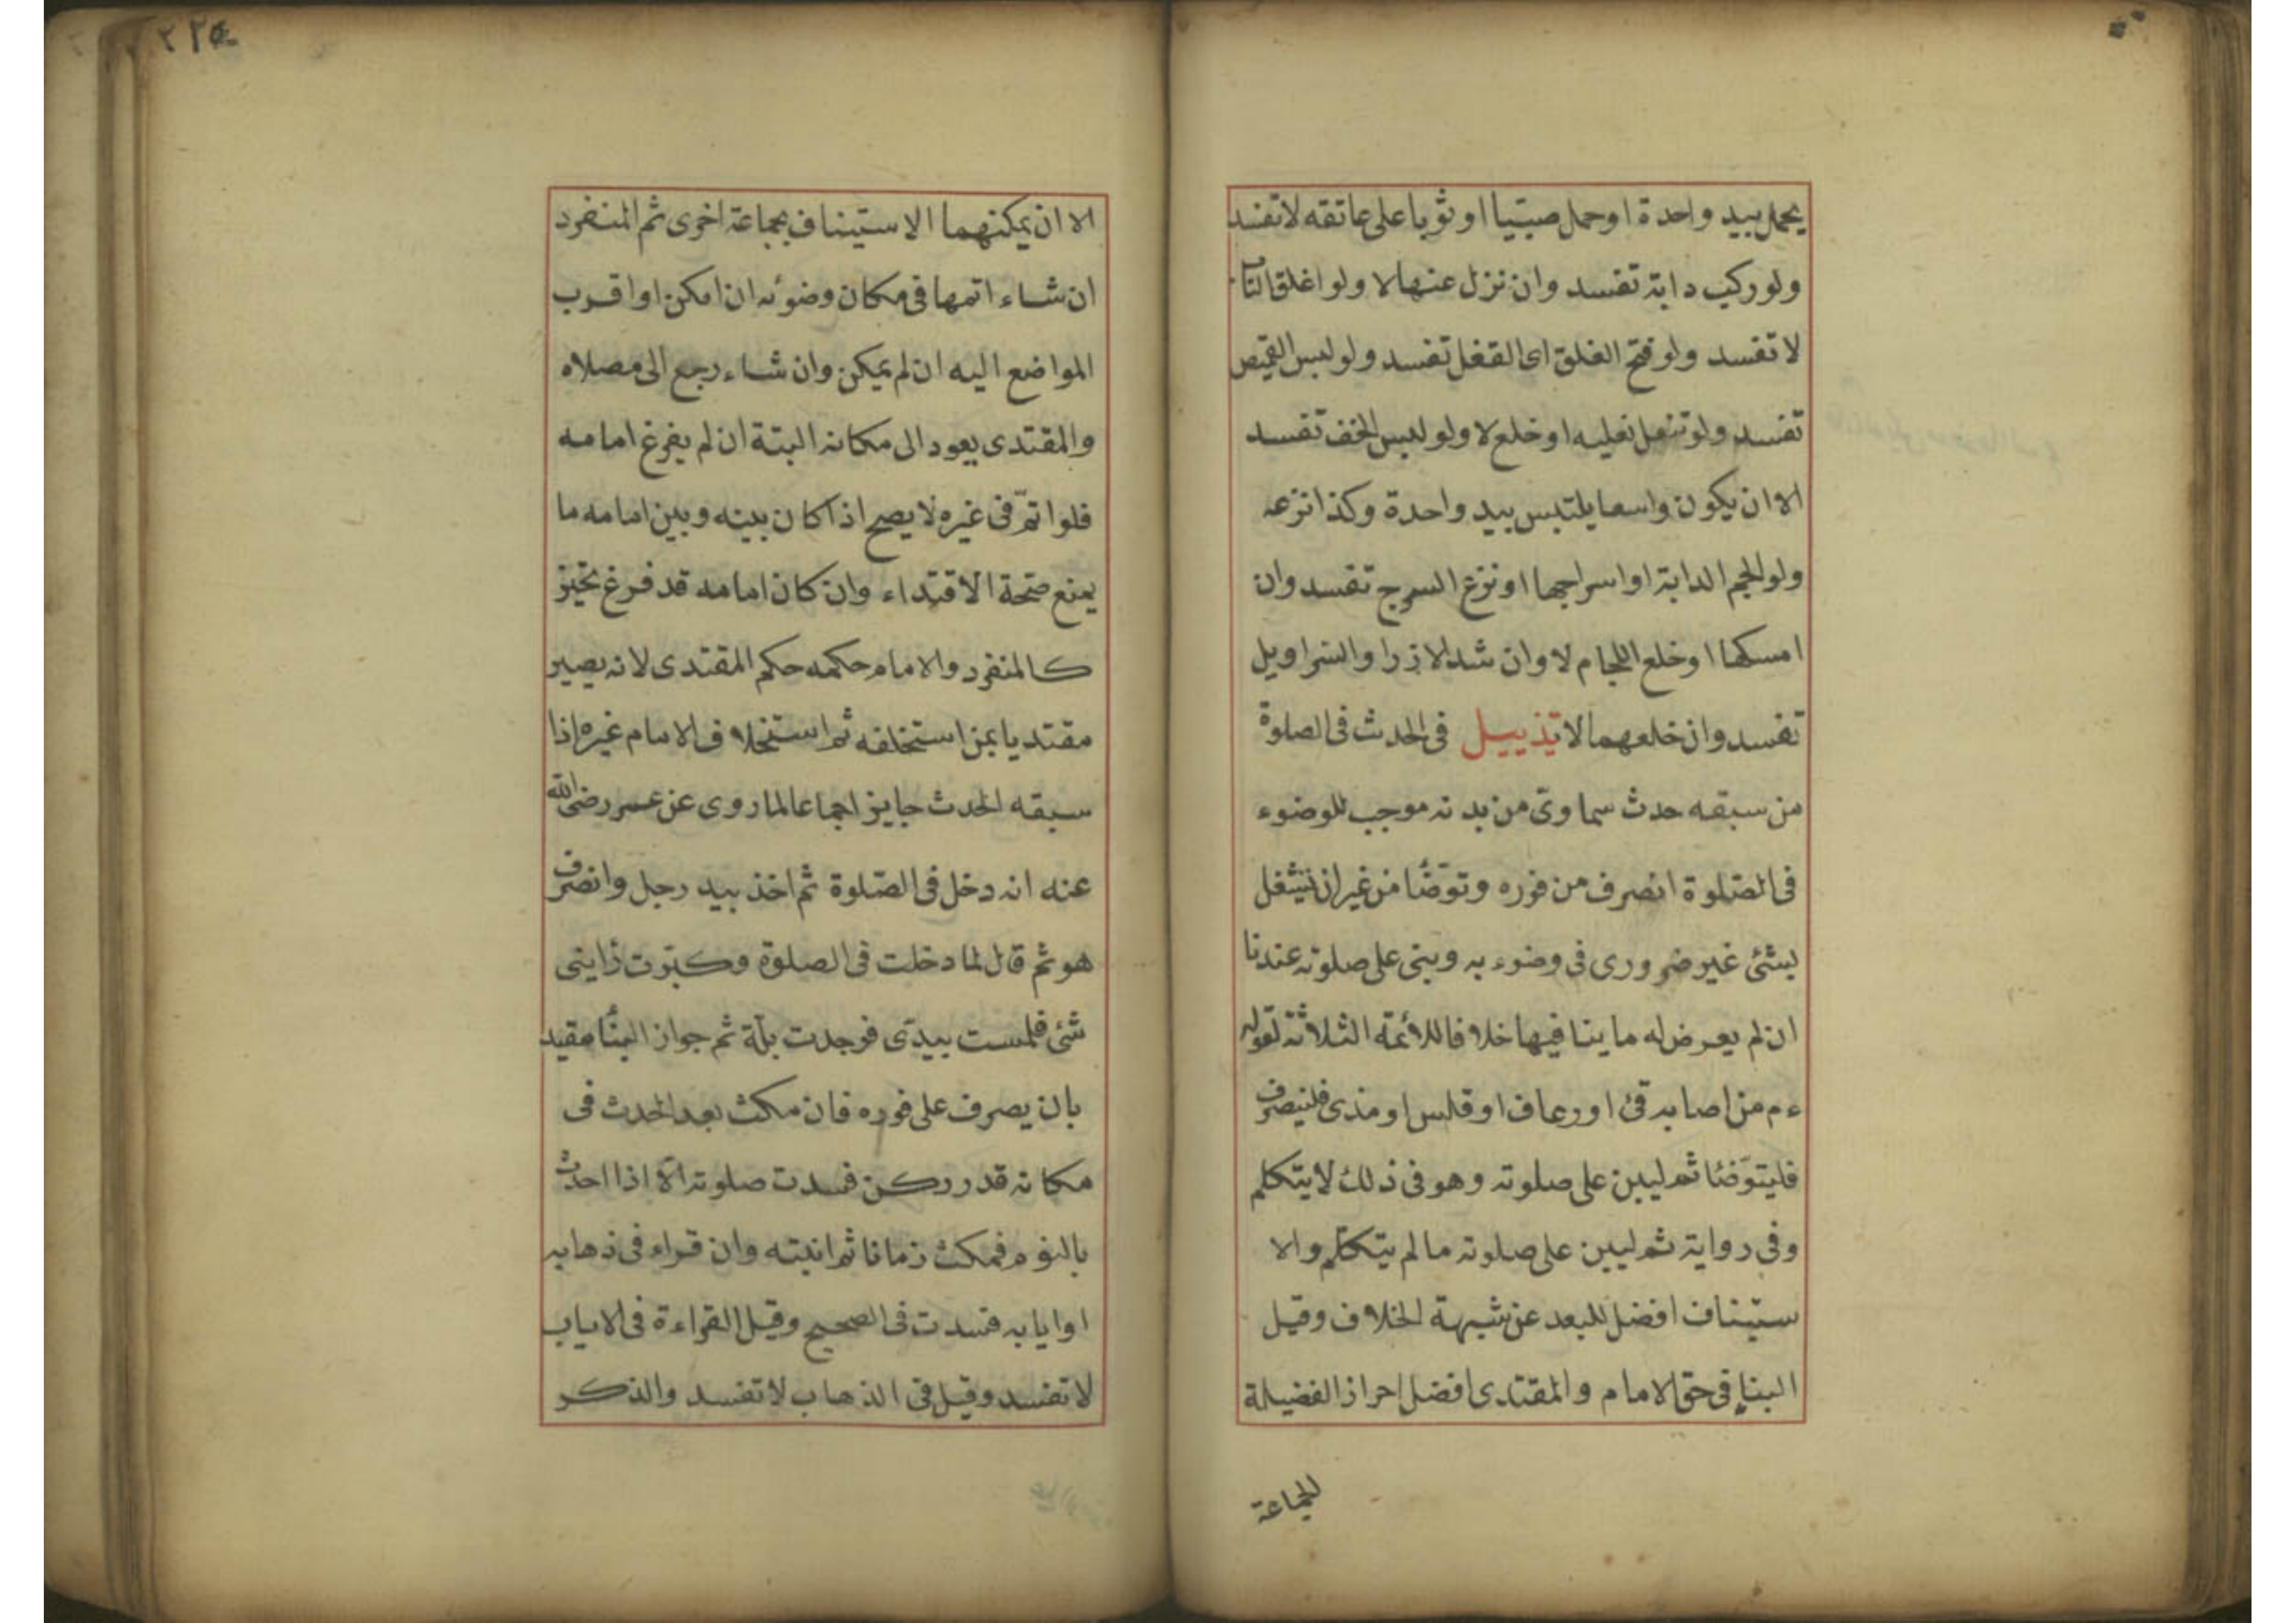 يحمل بيد واحدة او حمل صبيّا او ثوبا على عاتقه لا تفسد
ولو ركب دابة تفسد وان نزل عنها لا ولو اغلق الباب
لا تفسد ولو فتح الغلق اى القفل تفسد ولو لبس القميص
تفسد ولو تنعل نعليه او خلع لا ولو لبس الخف تفسد
الا ان يكون واسعا يلتبس بيد واحدة وكذا نزعه
ولو الجم الدابة او اسراجها او نزع السرج تفسد وان
امسكها او خلع اللجام لا وان شد الازرا والسراويل
تفسد وان خلعهما لا تذييل فى الحدث فى الصلوة
من سبقه حدث سماوىّ من بدنه موجب للوضوء
فى الصّلوة انصرف من فوره وتوضّأ من غير ان يشغل
بشئ غير ضرورى فى وضوء به وبنى على صلوته عندنا
ان لم يعرض له ما ينافيها خلافا للأئمة الثلاثة لقوله
ءم من اصابه قئ او رعاف او قلس او مذى فلينصرف
فليتوّضأ ثم ليبن على صلوته وهو فى ذلك لا يتكلم
وفى رواية ثم ليبن على صلوته ما لم يتكلم والا
ستيناف افضل للبعد عن شبهة الخلاف وقيل
البناء فى حق الامام والمقتدى افضل احراز الفضيلة
للجماعة
الا ان يمكنهما الاستيناف بجماعة اخرى ثم المنفرد
ان شاء اتمها فى مكان وضوئه ان امكن او اقرب
المواضع اليه ان لم يمكن وان شاء رجع الى مصلاه
والمقتدى يعود الى مكانه البتة ان لم يفرغ امامه
فلو اتمّ فى غيره لا يصح اذا كان بينه وبين امامه ما
يمنع صحّة الاقتداء وان كان امامه قد فرغ تخيّر
كالمنفرد والامام حكمه حكم المقتدى لانه يصير
مقتديا بمن استخلفه ثم استخلاف الامام غيره اذا
سبقه الحدث جايز اجماعا لما روى عن عمر رضى الله
عنه انه دخل فى الصّلوة ثم اخذ بيد رجل وانصرف
هو ثم قال لما دخلت فى الصلوة وكبّرت رابنى
شئ فلمست بيدّى فوجدت بلّة ثم جواز البناء مقيد
بان يصرف على فوره فان مكث بعد الحدث فى
مكانه قدر ركن فسدت صلوته الّا اذا احدث
بالنوم فمكث زمانا ثم انتبه وان قراء فى ذهابه
او ايابه فسدت فى الصحيح وقيل القراءة فى الاياب
لا تفسد وقيل فى الذهاب لا تفسد والذكر